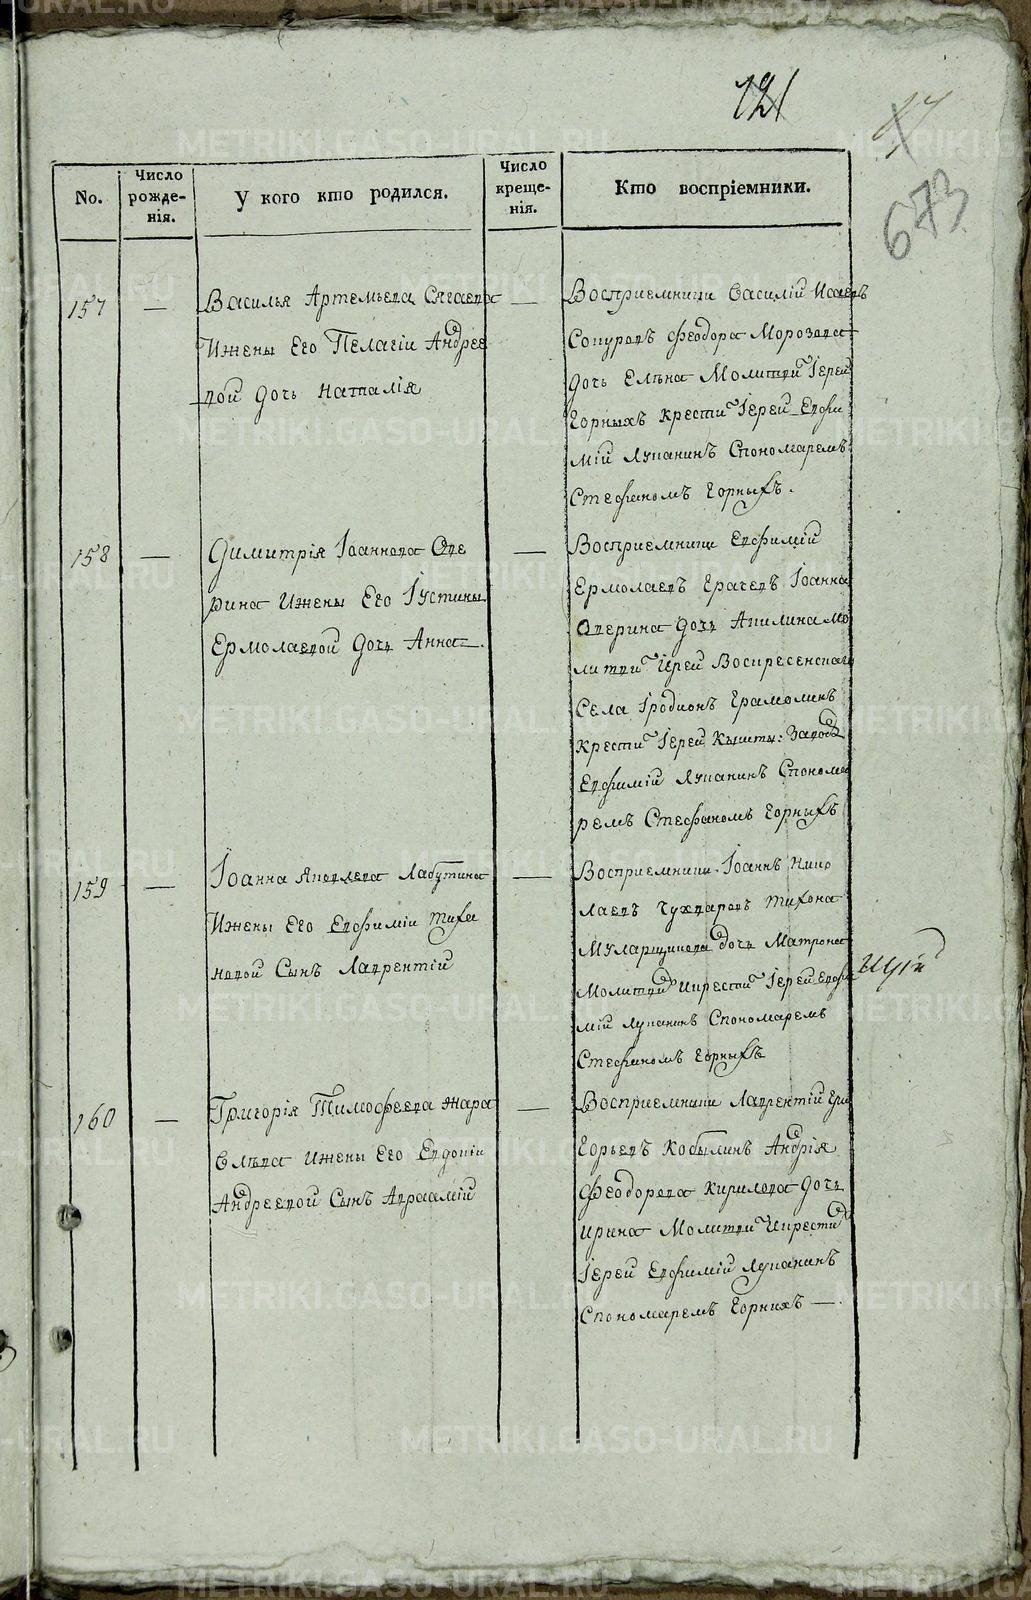 121
673
No.
Число рожденія.
У кого кто родился.
Число крещенія.
Кто воспріемники.
157
Василья Артемьева
Ижены Его Пелагіи Андрее
вой дочь Наталія
Восприемники Василій Исаевъ
Сопуровъ Феодора Морозова
дочь Елѣна Молитви Іерей
Горныхъ Крести Іерей Евфи
мій Лупанинъ Спономаремъ
Стефаномъ Горныхъ.
158
Димитрія Іоаннова Ове
рина Ижены Его Іустины
Ермолаевой дочь Анна
Восприемники Евфимій
Ермолаевъ Грачевъ Іоанна
Оверина дочь Акилина Мо
литви Іерей Воскресенскаго
Села Іродионъ Грамолинъ
Крести Іерей Кышты: Завода
Евфимій Лупанинъ Спонома
ремъ Стефаномъ Горныхъ
159
Іоанна Яковлева Лабутина
Ижены Его Евфиміи Тихо
новой Сынъ Лаврентій
Восприемники Іоаннъ Нико
лаевъ Чухваровъ Тихона
дочь Матрона
Молитви Икрести Іерей Евфи
мій Лупанинъ Спономаремъ
Стефаномъ Горныхъ
160
Григорія Тимофеева Кара
Ижены Его Евдокіи
Андреевой Сынъ Авраамій
Восприемники Лаврентій Гри
горьевъ Кобылинъ Андрія
Феодорова Кирилова дочь
Ирина Молитви Икрести
Іерей Евфимій Лупанинъ
Спономаремъ Горнихъ